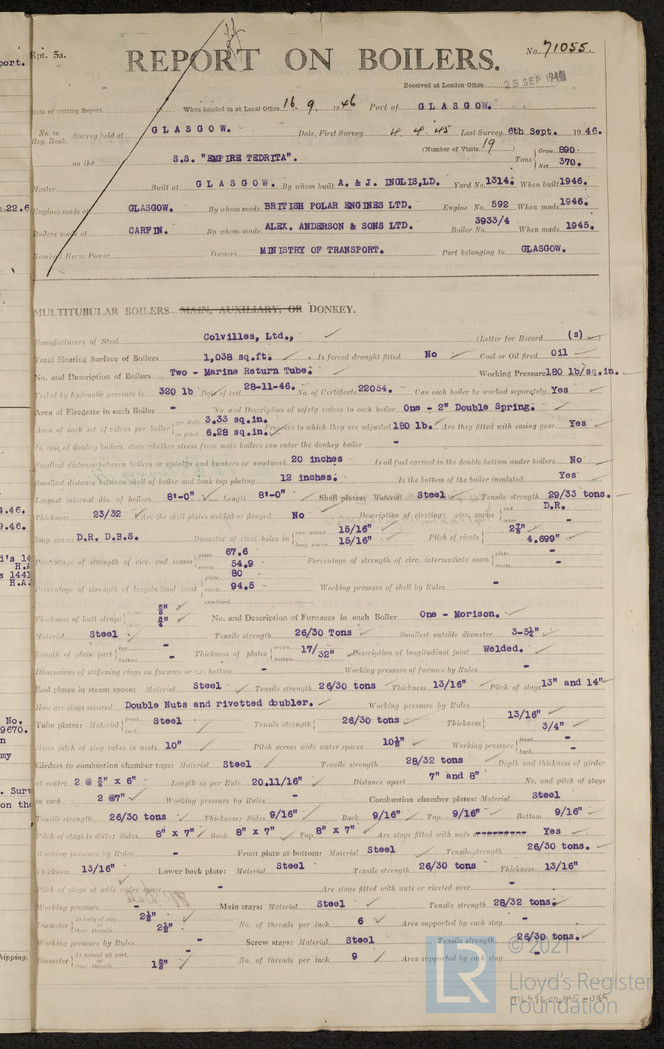 Rpt. 5a.
REPORT ON BOILERS.
No. 71055.
Received at London Office 25 SEP 1946
Date of writing Report When handed in at Local Office 16 9 1946 Port of GLASGOW.
No. in Reg. Book. Survey held at GLASGOW. Date, First Survey 4. 4. 45 Last Survey 6th Sept. 1946.
(Number of Visits 19)
on the S.S. "EMPIRE TEDRITA". Tons Gross 890. Net 370.
Master Built at GLASGOW. By whom built A. & J. INGLIS, LD. Yard No. 1314. When built 1946.
Engines made at GLASGOW. By whom made BRITISH POLAR ENGINES LTD. Engine No. 592 When made 1946.
Boilers made at CARFIN. By whom made ALEX. ANDERSON & SONS LTD. Boiler No. 3933/4 When made 1945.
Nominal Horse Power Owners MINISTRY OF TRANSPORT. Port belonging to GLASGOW.
MULTITUBULAR BOILERS MAIN, AUXILIARY, OR DONKEY.
Manufacturers of Steel Colvilles, Ltd., (Letter for Record (s))
Total Heating Surface of Boilers 1,038 sq.ft. Is forced draught fitted No Coal or Oil fired Oil
No. and Description of Boilers Two - Marine Return Tube. Working Pressure 180 lb/sq.in.
Tested by hydraulic pressure to 320 lb Date of test 28-11-46. No. of Certificate 22054. Can each boiler be worked separately Yes
Area of Firegrate in each Boiler - No. and Description of safety valves to each boiler One - 2" Double Spring.
Area of each set of valves per boiler per Rule 3.33 sq.in. as fitted 6.28 sq.in. Pressure to which they are adjusted 180 lb. Are they fitted with easing gear Yes
In case of donkey boilers, state whether steam from main boilers can enter the donkey boiler -
Smallest distance between boilers or uptakes and bunkers or woodwork 20 inches Is oil fuel carried in the double bottom under boilers No
Smallest distance between shell of boiler and tank top plating 12 inches. Is the bottom of the boiler insulated Yes
Largest internal dia. of boilers 8'-0" Length 8'-0" Shell plates: Material Steel Tensile strength 29/33 tons.
Thickness 23/32 Are the shell plates welded or flanged No Description of riveting: circ. seams end D.R. inter. -
long. seams D.R. D.B.S. Diameter of rivet holes in circ. seams 15/16" long. seams 15/16" Pitch of rivets 2⅞" 4.699"
Percentage of strength of circ. end seams plate 67.6 rivets 54.9 Percentage of strength of circ. intermediate seam plate - rivets -
Percentage of strength of longitudinal joint plate 80 rivets 94.5 combined Working pressure of shell by Rules -
Thickness of butt straps outer ⅝" inner ¾" No. and Description of Furnaces in each Boiler One - Morison.
Material Steel Tensile strength 26/30 Tons Smallest outside diameter 3-5¼"
Length of plain part top - bottom - Thickness of plates crown bottom 17/32" Description of longitudinal joint Welded.
Dimensions of stiffening rings on furnace or c.c. bottom - Working pressure of furnace by Rules -
End plates in steam space: Material Steel Tensile strength 26/30 tons Thickness 13/16" Pitch of stays 13" and 14"
How are stays secured Double Nuts and rivetted doubler. Working pressure by Rules -
Tube plates: Material front back Steel Tensile strength 26/30 tons Thickness 13/16" 3/4"
Mean pitch of stay tubes in nests 10" Pitch across wide water spaces 10½" Working pressure front - back -
Girders to combustion chamber tops: Material Steel Tensile strength 28/32 tons Depth and thickness of girder
at centre 2 @ ⅝" x 6" Length as per Rule 20.11/16" Distance apart 7" and 8" No. and pitch of stays
in each 2 @7" Working pressure by Rules - Combustion chamber plates: Material Steel
Tensile strength 26/30 tons Thickness: Sides 9/16" Back 9/16" Top 9/16" Bottom 9/16"
Pitch of stays to ditto: Sides 8" x 7" Back 8" x 7" Top 8" x 7" Are stays fitted with nuts Yes
Working pressure by Rules - Front plate at bottom: Material Steel Tensile strength 26/30 tons.
Thickness 13/16" Lower back plate: Material Steel Tensile strength 26/30 tons Thickness 13/16"
Pitch of stays at wide water space - Are stays fitted with nuts or riveted over -
Working pressure - Main stays: Material Steel Tensile strength 28/32 tons.
Diameter At body of stay 2½" Over threads 2½" No. of threads per inch 6 Area supported by each stay -
Working pressure by Rules - Screw stays: Material Steel Tensile strength 26/30 tons.
Diameter At turned off part - Over threads 1⅝" No. of threads per inch 9 Area supported by each stay -
LR © 2021
Lloyd's Register
Foundation